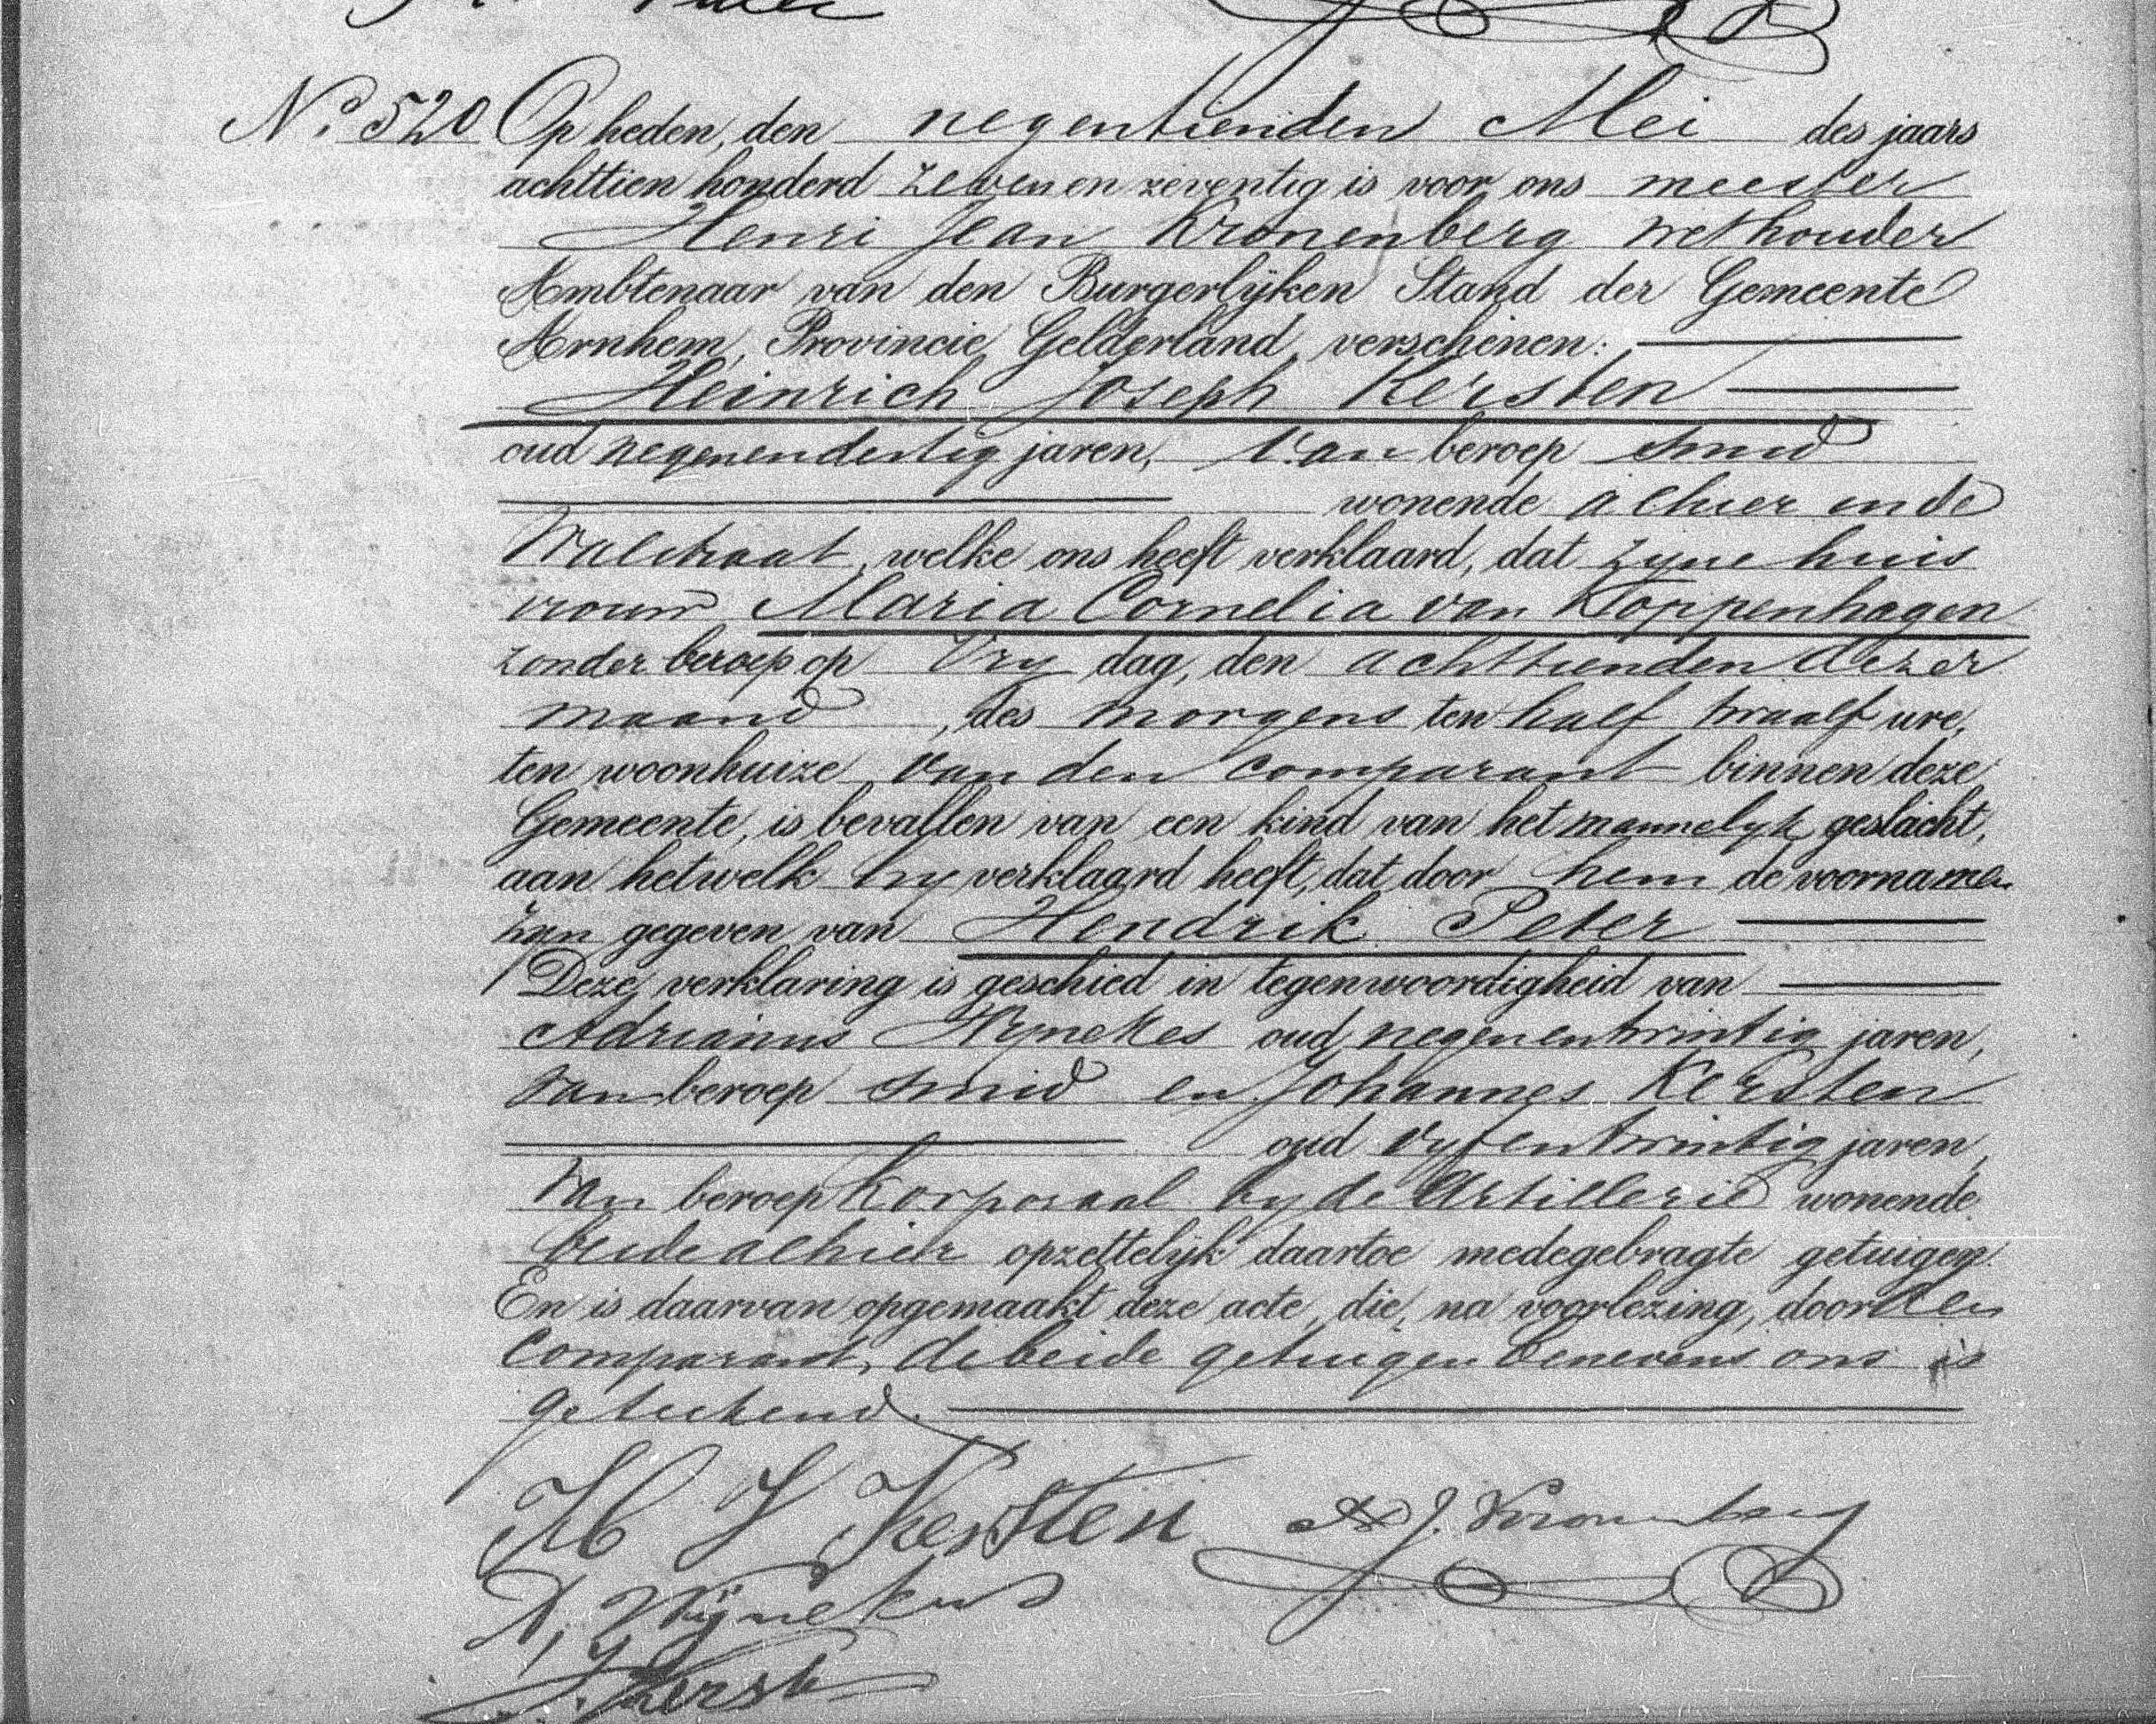 No. 520 Op heden, den negentienden Mei des jaars
achttien honderd zeven en zeventig is voor ons meester
Henri Jean Kronenberg wethouder
Ambtenaar van den Burgerlijken Stand der Gemeente
Arnhem, Provincie Gelderland, verschenen:
Heinrich Joseph Kersten
oud negenendertig jaren, van beroep smid
wonende alhier in de
Walstraat, welke ons heeft verklaard, dat zyne huis
vrouw Maria Cornelia van Koppenhagen
zonder beroep op Vry dag, den achttienden dezer
maand, des morgens ten half twaalf ure,
ten woonhuize van den comparant binnen deze
Gemeente, is bevallen van een kind van het mannelyk geslacht,
aan hetwelk hy verklaard heeft, dat door hem de voornamen
zyn gegeven van Hendrik Peter
Deze verklaring is geschied in tegenwoordigheid van
Adrianus Wynekes oud negenentwintig jaren,
van beroep smid en Johannes Kersten
oud vyfentwintig jaren,
van beroep korporaal by de Artillerie wonende
beide alhier opzettelijk daartoe medegebragte getuigen.
En is daarvan opgemaakt deze acte, die, na voorlezing, door den
Comparant, de beide getuigen benevens ons is
geteekend.
H J Kersten H J. Kronenberg
A, Wijnekus
J. Kerst